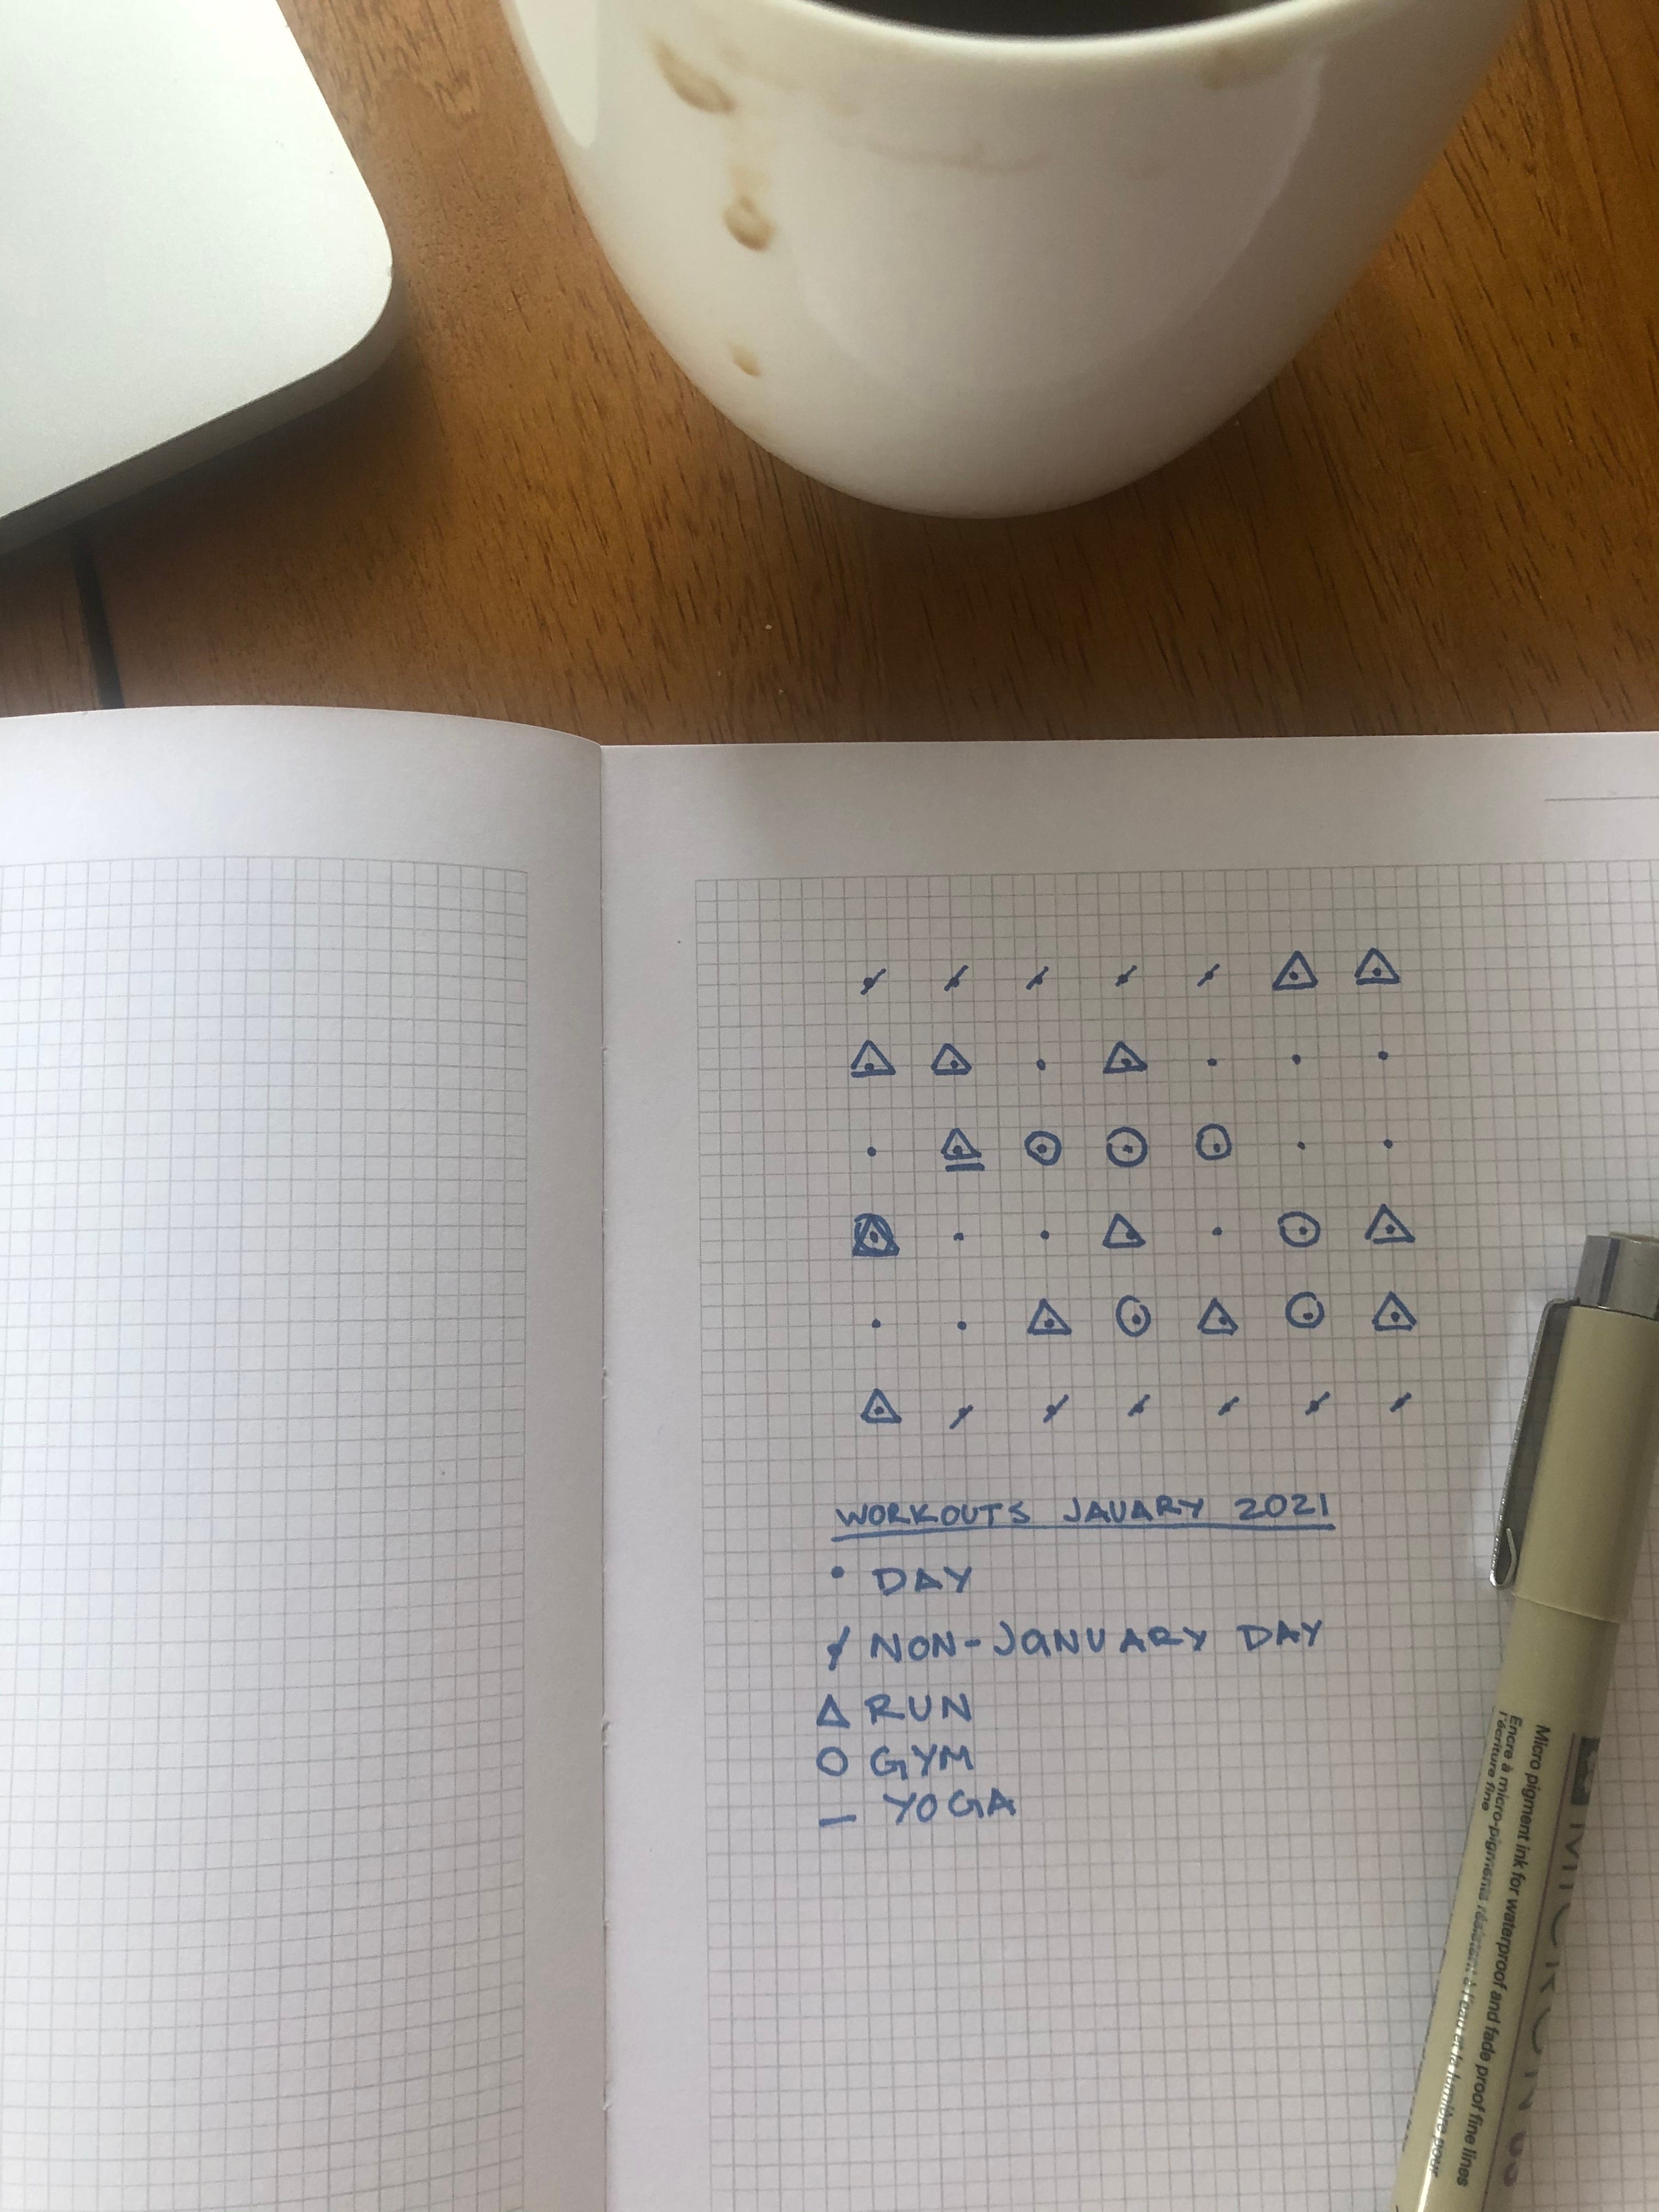 WORKOUTS JAUARY 2021
DAY
NON-JANUARY DAY
RUN
GYM
YOGA
MICRON
Micro pigment ink for waterproof and fade proof fine lines
Encre à micro-pigments résistant à l'eau et à la lumière pour
l'écriture fine